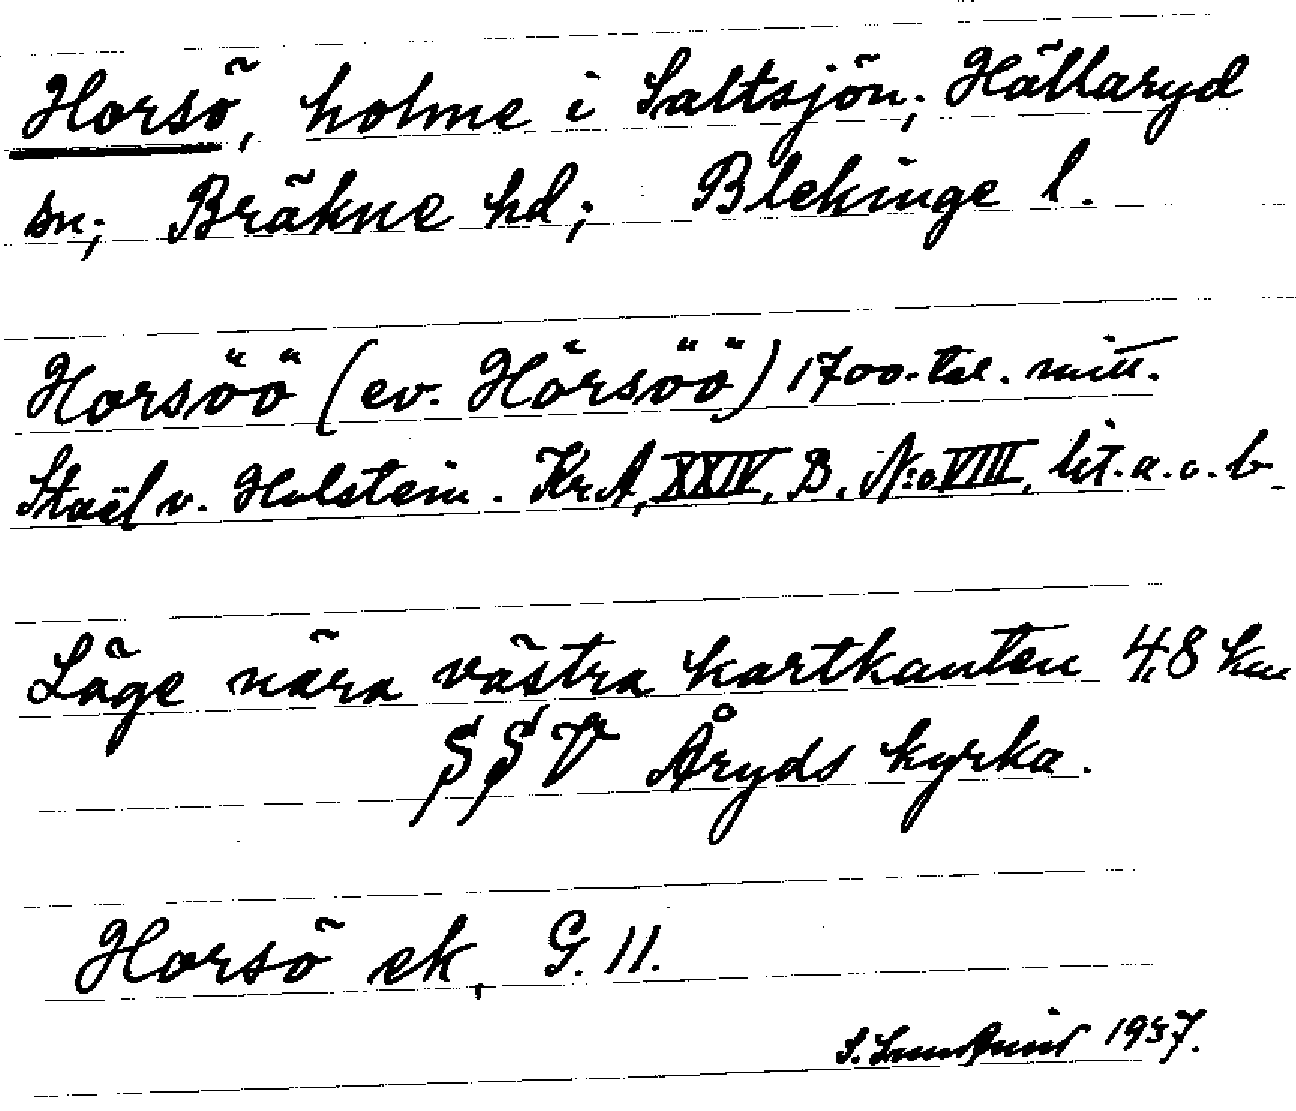 Horsö, holme i Saltsjön; Hällaryd
sn; Bräkne hd; Blekinge l.
Horsöö (ev. Hörsöö) 1700-tal. mitt.
Staël v. Holstein. Kr.A, XXIV, B, No VIII, lit. a. o. b
Läge nära västra kartkanten 4,8 km
SSV Åryds kyrka.
Horsö ek, G. 11.